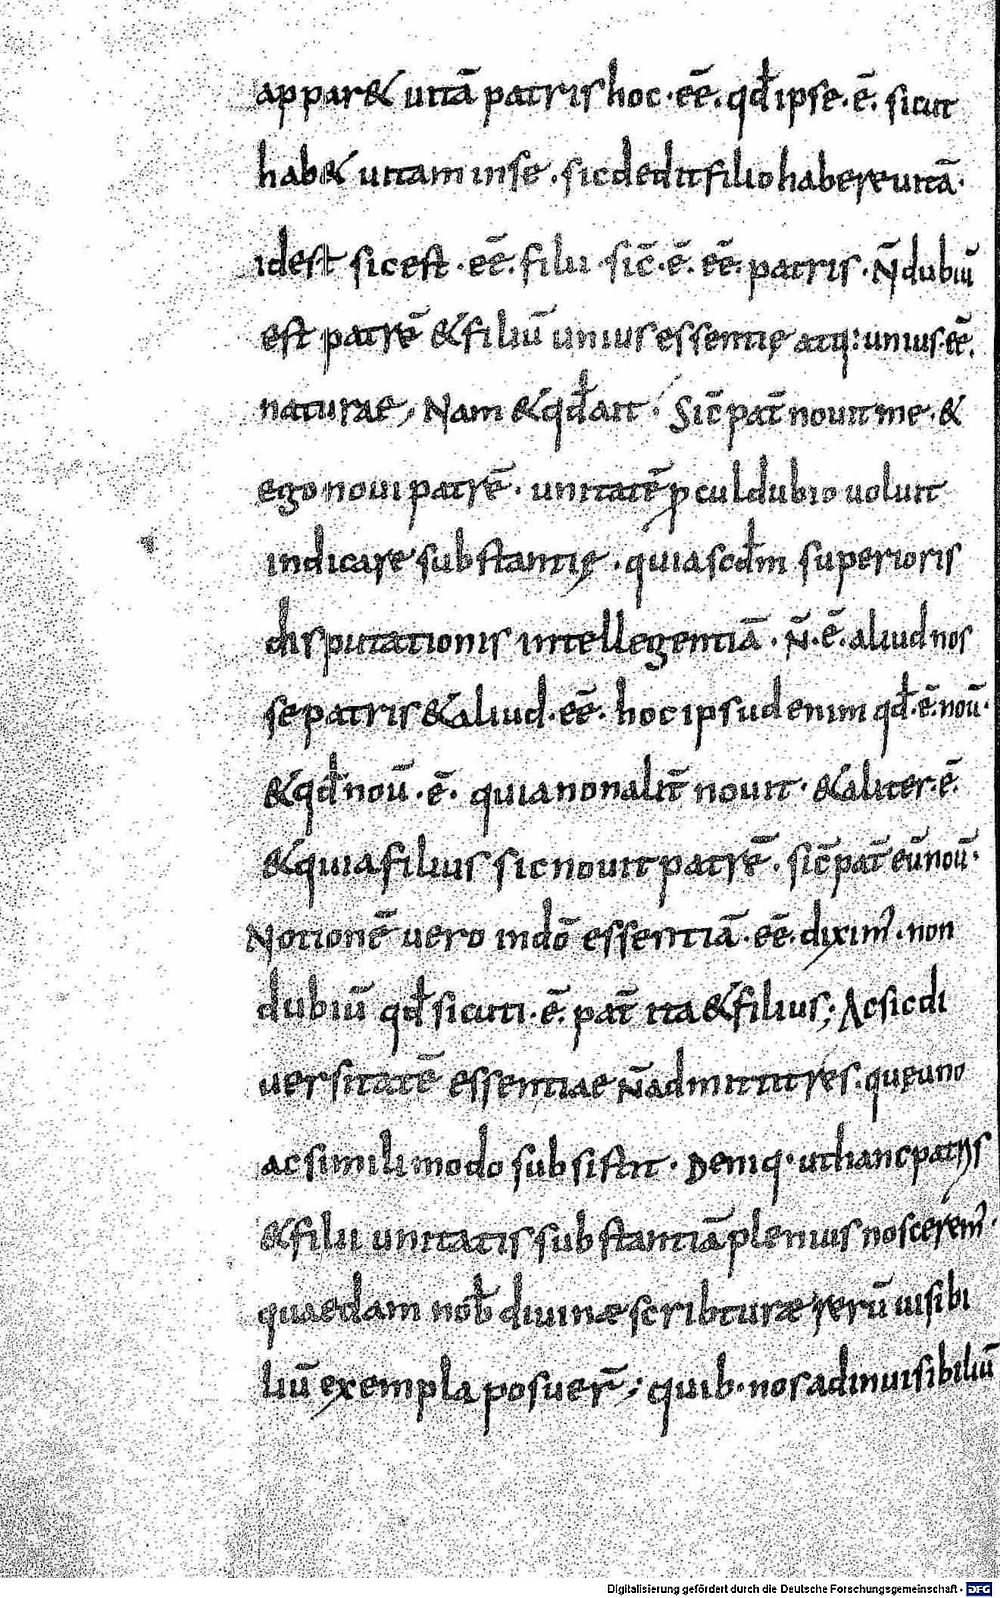 appar& uitā patris hoc · eē · qđ ipse · ē · sicut
hab& uitam in se · sic dedit filio habere uitā ·
id est sic est · eē · filii · sic̄ · ē · eē · patris · N̄ dubiū
est patrē & filiū unius essentię atq: unius · eē ·
naturae, Nam & qđ ait · Sic̄ pat̄ nouit me · &
ego noui patrē · unitatē ꝓculdubio uoluit
indicare substantię · quia scđm superioris
disputationis intellegentiā · N̄ · ē · aliud nos
se patris & aliud · eē · hoc ipsud enim qđ · ē · noū ·
& qđ noū · ē · quia non alit̄ nouit · & aliter · ē ·
& quia filius sic nouit patrē · sic̄ pat̄ eū noū ·
Notionē uero in dō essentiā · eē · diximꝰ · non
dubiū qđ sicuti · ē · pat̄ ita & filius; Ac sic di
uersitatē essentiae N̄ admittit res · quę uno
ac simili modo subsistit · Deniq · ut hanc patris
& filii unitatis substantiā plenius nosceremꝰ ·
quaedam noƀ diuinæ scribturæ rerū uisibi
liū exempla posuer̄; quib · nos ad inuisibiliū
Digitalisierung gefördert durch die Deutsche Forschungsgemeinschaft · DFG